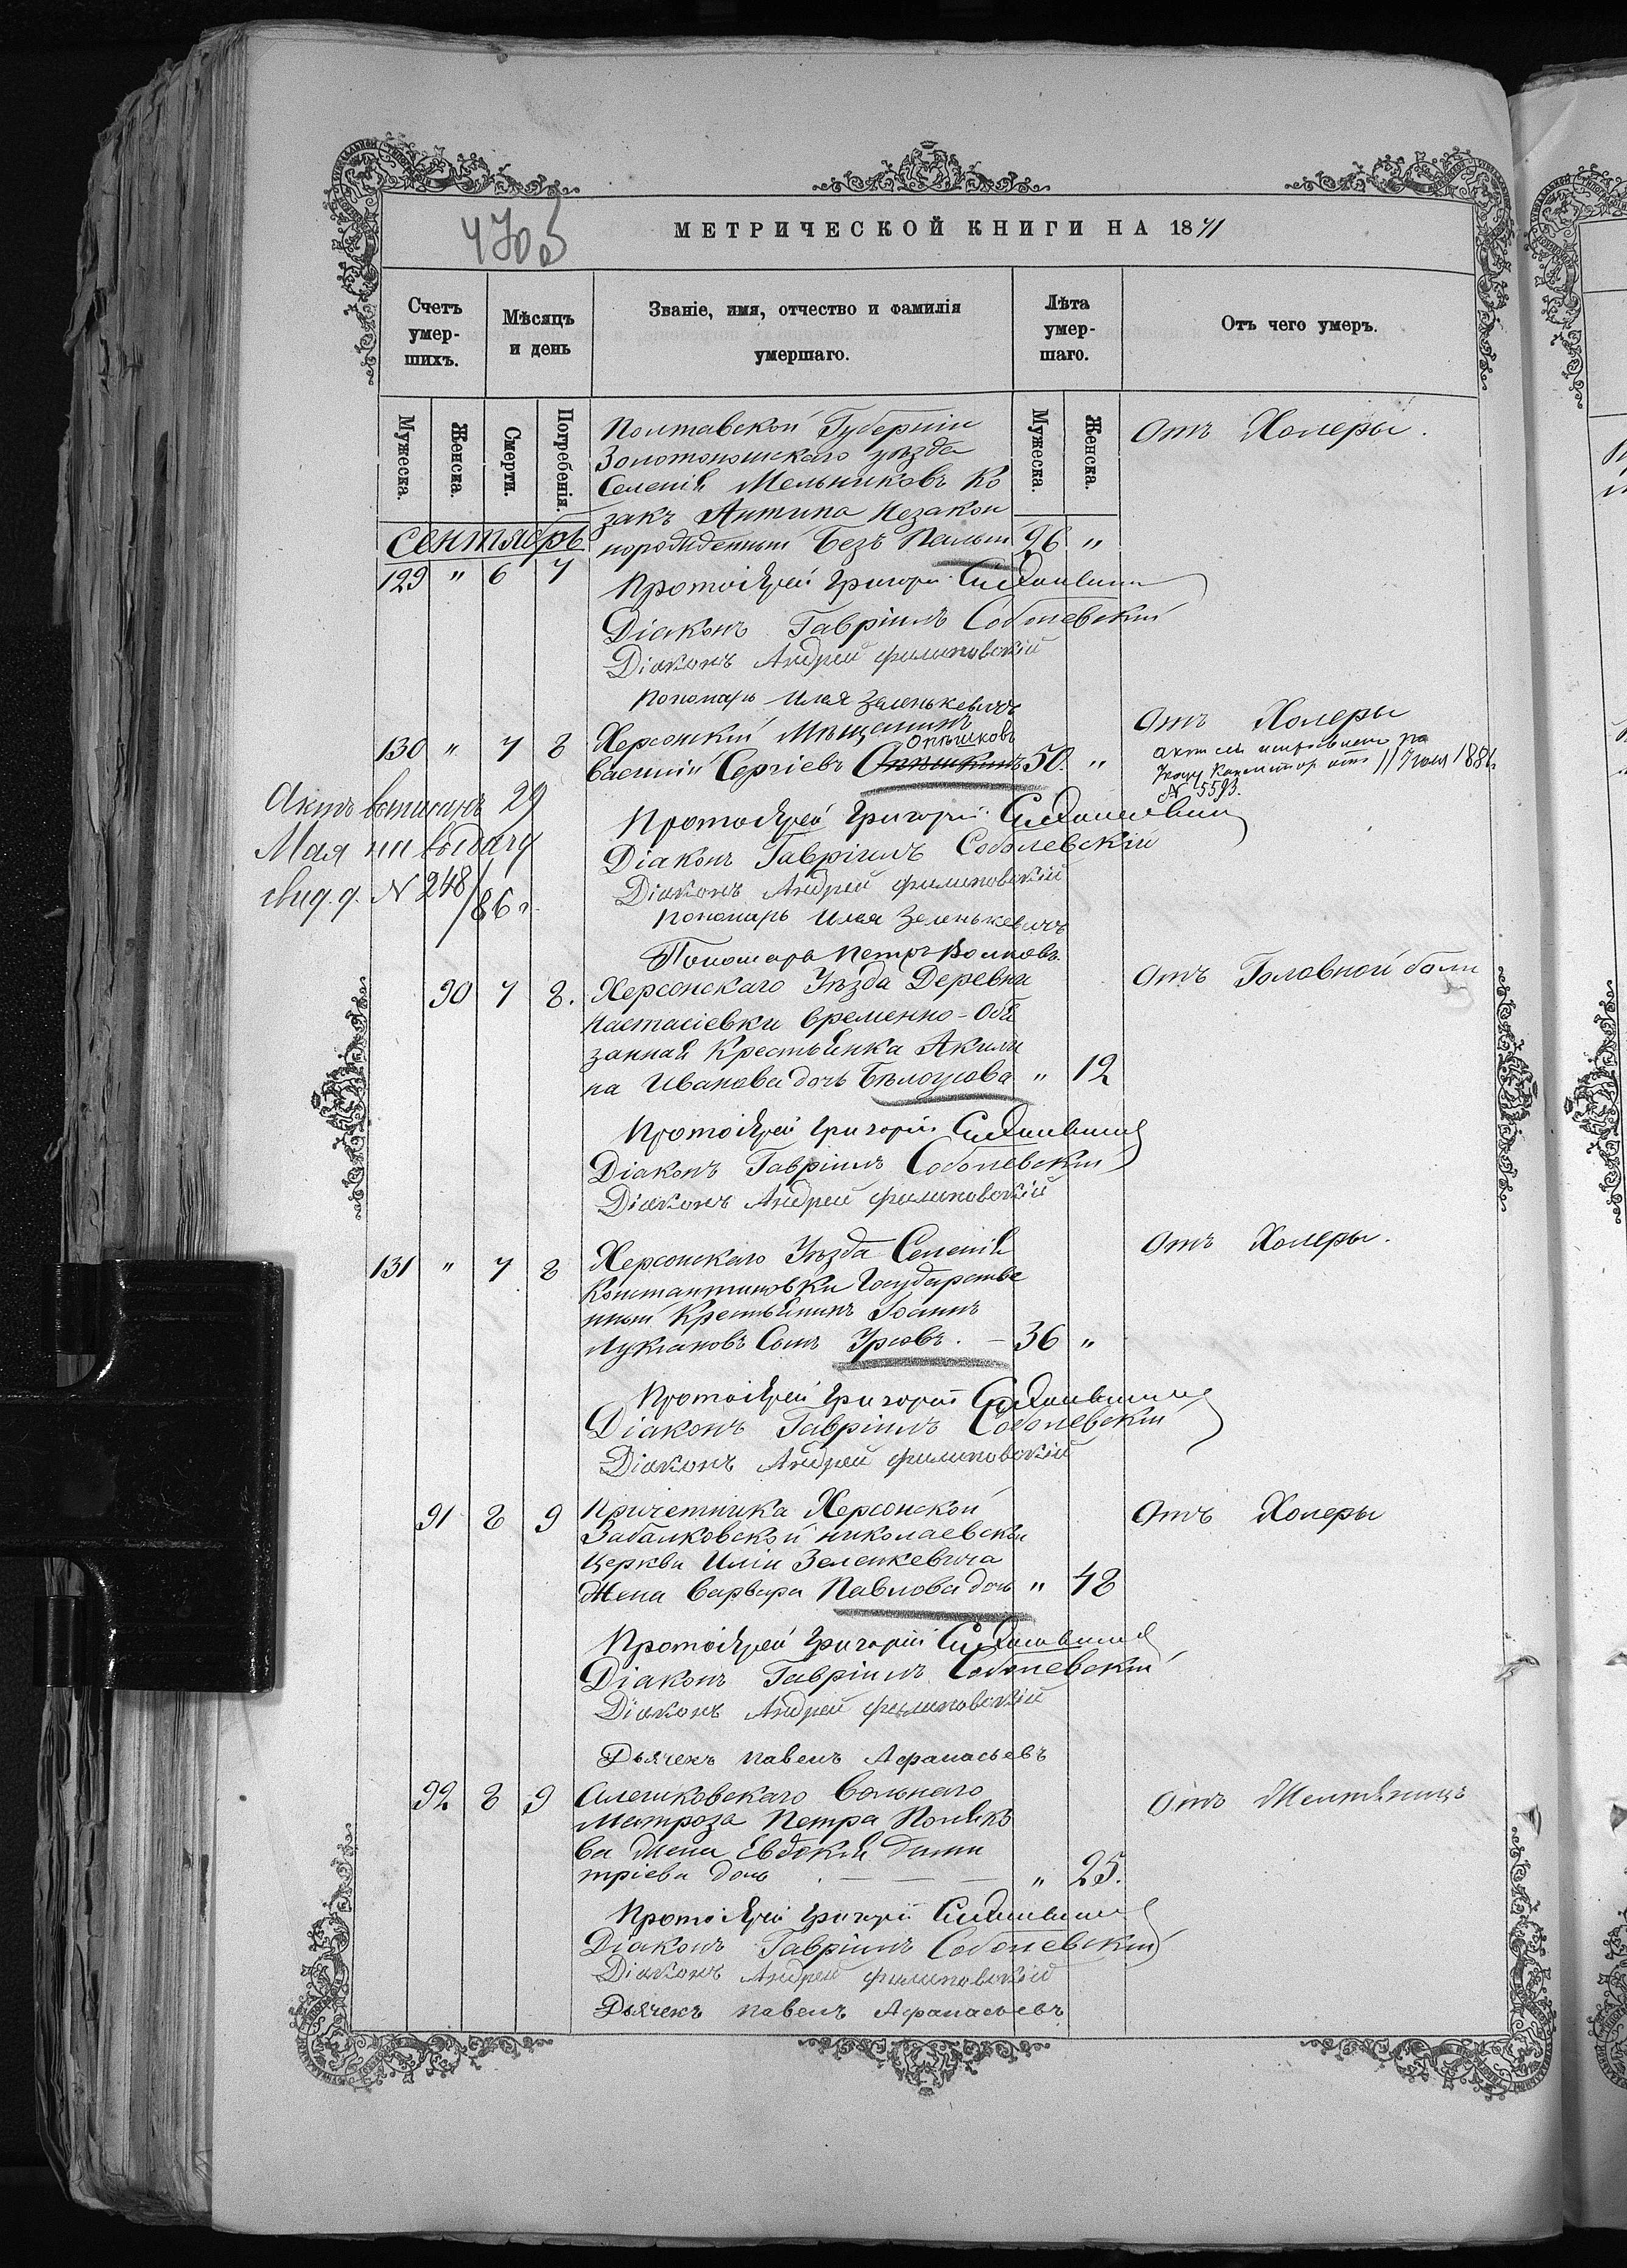 МЕТРИЧЕСКОЙ КНИГИ НА 1871
Счетъ умер-шихъ.
Мѣсяцъ и день
Званіе, имя, отчество и фамилія умершаго.
Лѣта умер-шаго.
Отъ чего умеръ.
Мужеска. Женска. Смерти. Погребенія. Мужеска. Женска.
Полтавской Губерніи
Отъ Холеры.
Золотоношскаго уѣзда
Селенія Мельниковъ Ко
закъ Антипа Незакон
Сентябрь
норожденный Безъ 96 "
129 " 6 7
Протоіерей Григорій
Діаконъ Гавріилъ Соболевскій
Діаконъ Андрей Филиповскій
Пономарь Илья Зеленькевичъ
130 " 7 8 Херсонскій Мѣщанинъ
Отъ Холеры
Опѣшковъ
Василій Сергіевъ 50. "
11 Іюля 1886
N 5593.
Актъ выписанъ 29
Мая на выдачу
свид. д. N 248/86 г.
Протоіерей Григорій
Діаконъ Гавріилъ Соболевскій
Діаконъ Андрей Филиповскій
Пономарь Илья Зеленькевичъ
Пономарь Петръ Волковъ
90 7 8. Херсонскаго Уѣзда Деревни
Отъ Головной боли
Настасіевки временно-Обя
занная Крестьянка Акили
на Иванова дочь Бѣлоусова " 12
Протоіерей Григорій
Діаконъ Гавріилъ Соболевскій
Діаконъ Андрей Филиповскій
131 " 7 8 Херсонскаго Уѣзда Селенія
Отъ Холеры.
Константиновки Государстве
нный Крестьянинъ Іоаннъ
Лукіановъ Сынъ Урсовъ. — 36 "
Протоіерей Григорій
Діаконъ Гавріилъ Соболевскій
Діаконъ Андрей Филиповскій
91 8 9 Причетника Херсонской
Отъ Холеры
Забалковской николаевской
Церкви Иліи Зеленкевича
Жена Варвара Павлова дочь " 48
Протоіерей Григорій
Діаконъ Гавріилъ Соболевскій
Діаконъ Андрей Филиповскій
Дьячекъ Павелъ Афанасьевъ
92 8 9 Алешковскаго Вольнаго
Отъ
Матроза Петра Поляко
ва Жена Евдокія Дими
тріева дочь — — — " 25.
Протоіерей Григорій
Діаконъ Гавріилъ Соболевскій
Діаконъ Андрей Филиповскій
Дьячекъ Павелъ Афанасьевъ